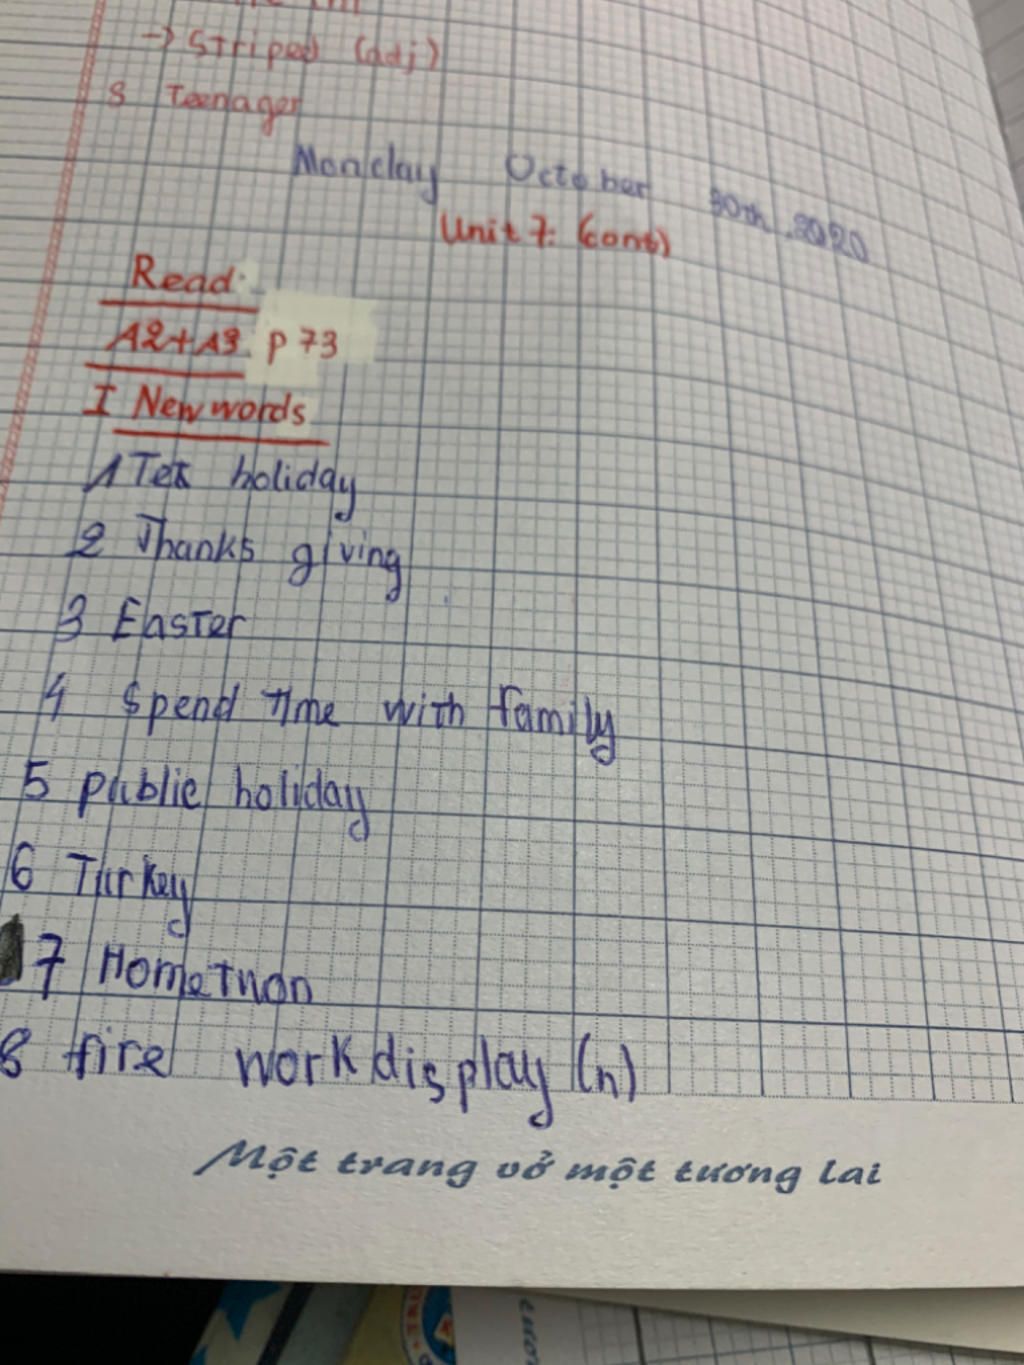 → Striped (adj)
8 Teenager
Monday October 30th, 2020
Unit 7: (cont)
Read:
A2+A3 p 73
I New words
1 Tet holiday
2 Thanks giving
3 Easter
4 spend time with family
5 public holiday
6 Turkey
7 Hometuon
8 fire work display (n)
Một trang vở một tương lai